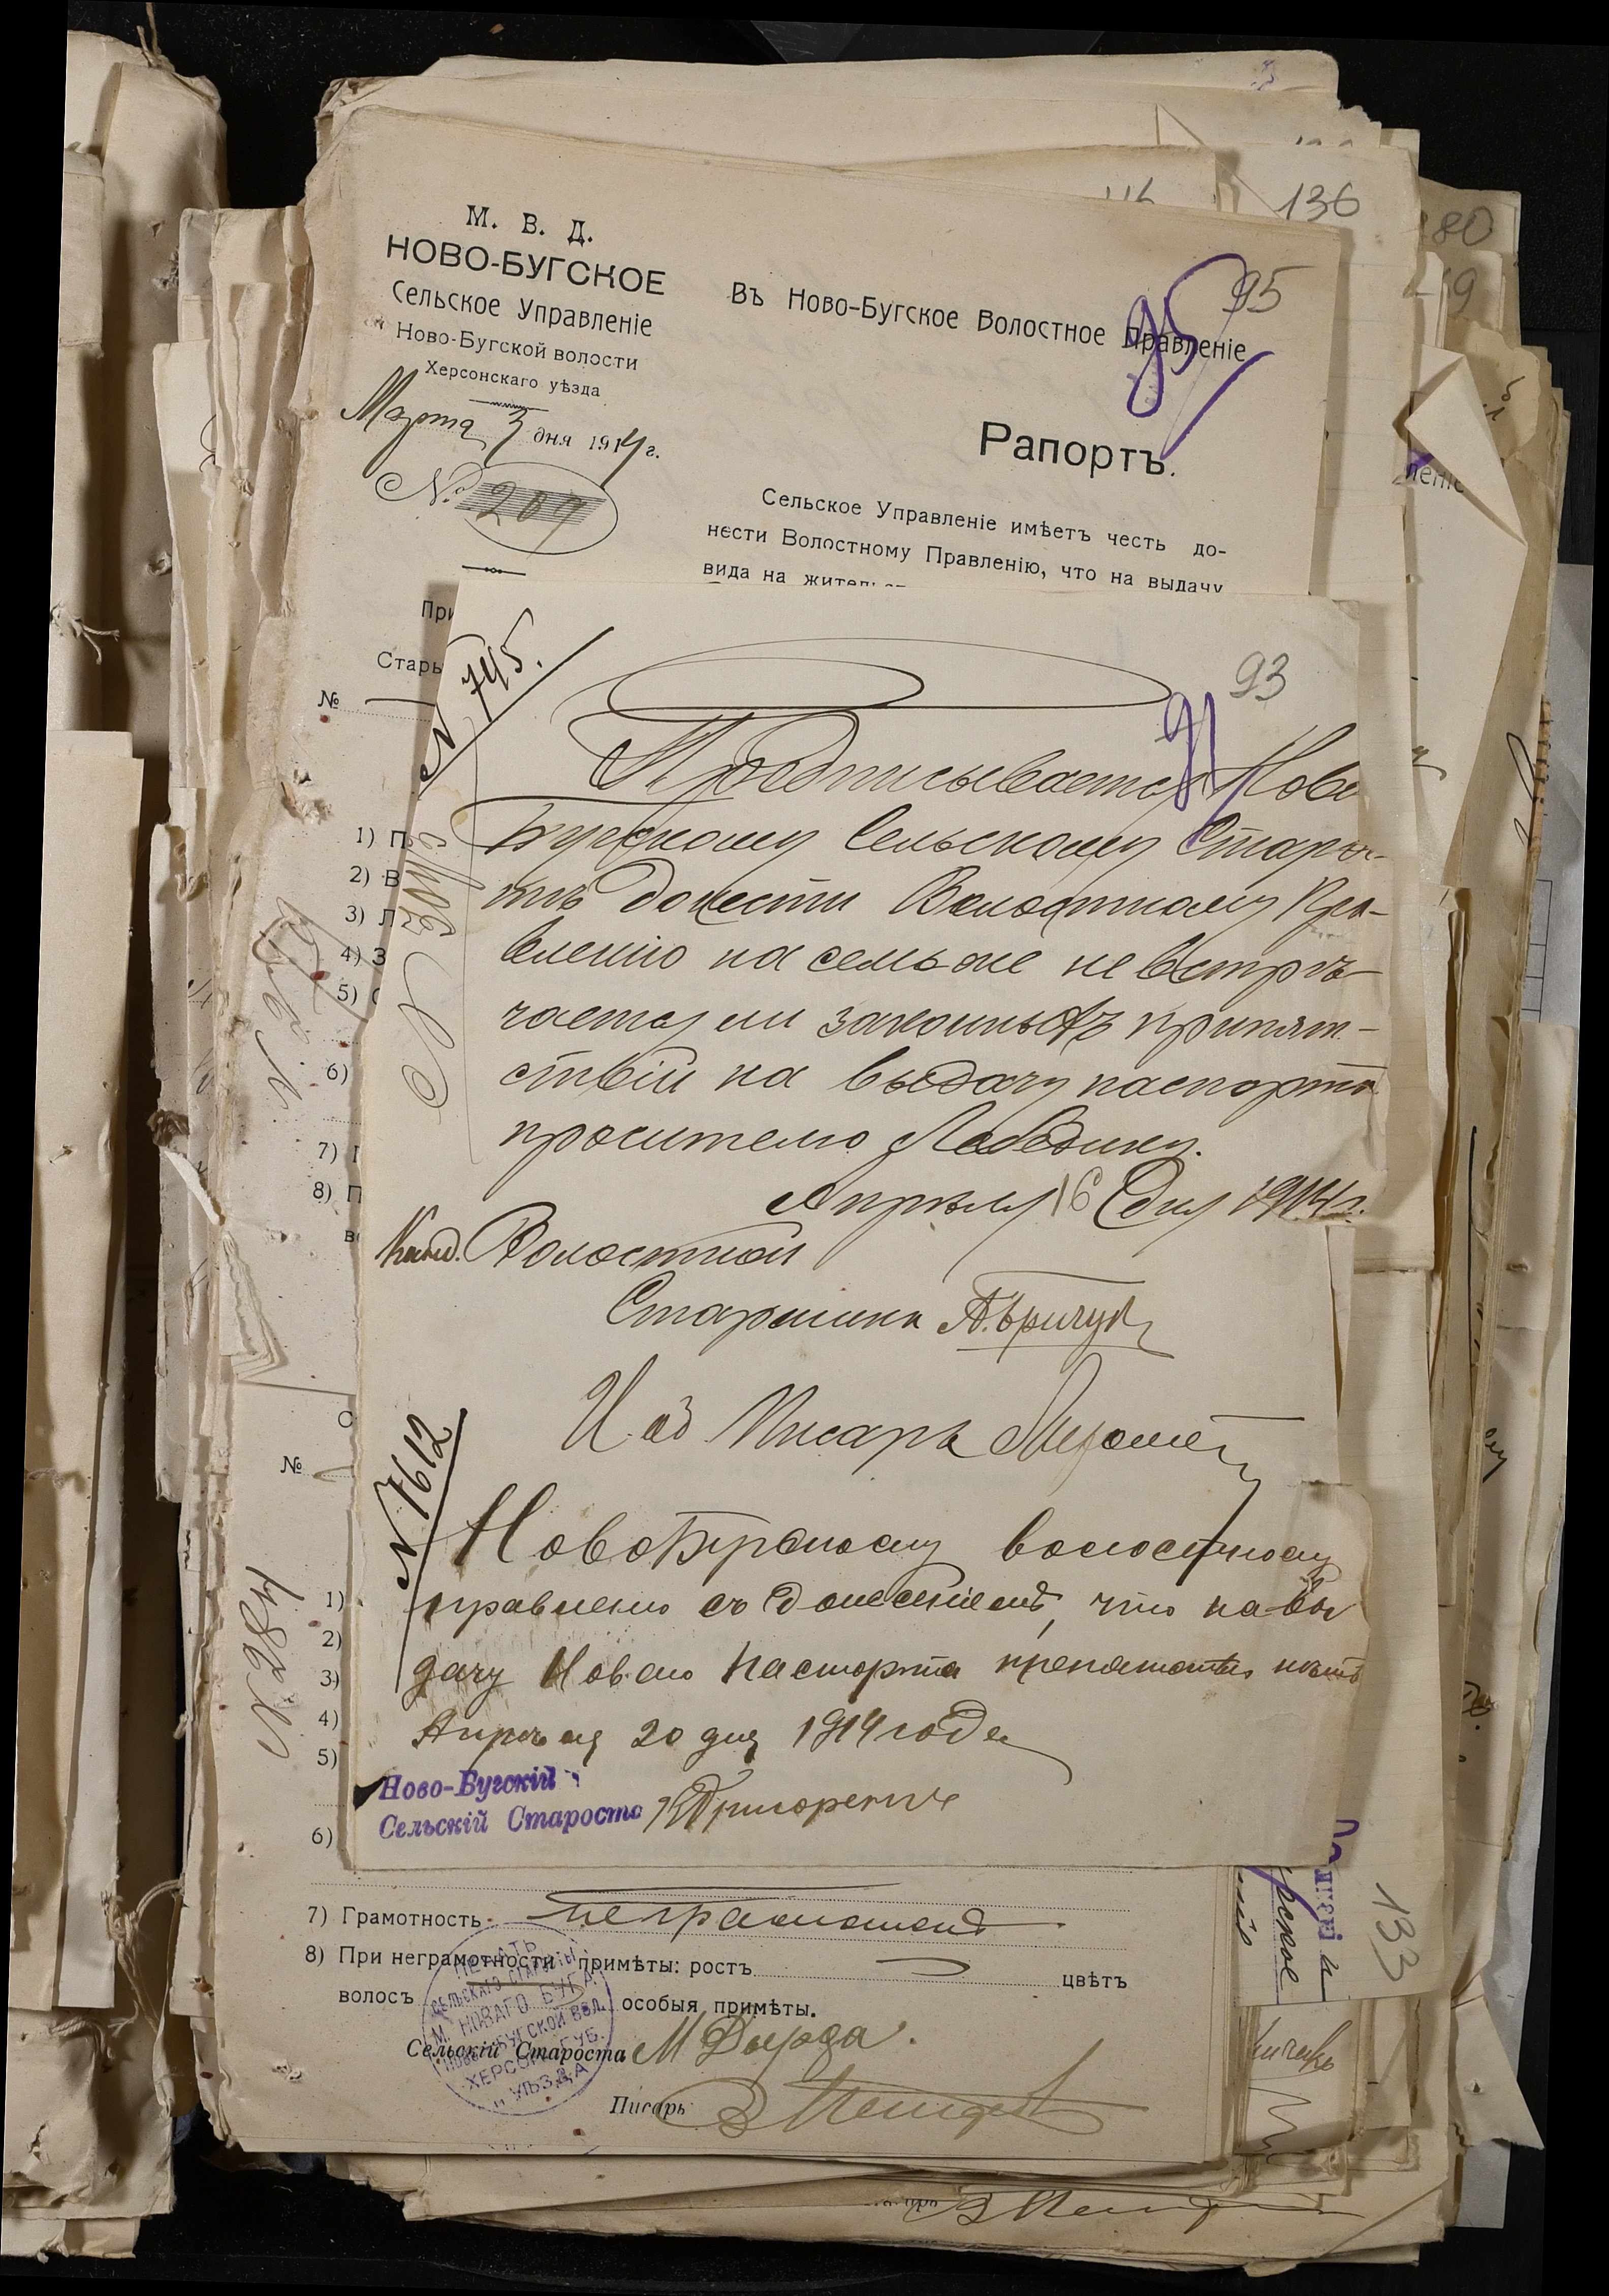 136
80
М. В. Д.
НОВО-БУГСКОЕ
Сельское Управленіе
Ново-Бугской волости
Херсонскаго уѣзда
Марта 3 дня 1914 г.
№ 209
95
95
Въ Ново-Бугское Волостное Правленіе
Рапортъ.
Сельское Управленіе имѣетъ честь до-
нести Волостному Правленію, что на выдачу
вида на жительст
При
Стары
№
N 745.
93
Предписывается Ново
Бугскому Сельскому Старос-
тѣ донести Волостному Пра-
вленію на семъ же не встрѣ-
чается ли законныхъ припят-
ствій на выдачу паспорта
просителю Лебедину.
Апрѣля 16 дня 1914 г.
Канд. Волостной
Старшина
И. об Писаря
N 1612
НовоБугскому волостному
правленію съ донесеніемъ, что на вы
дачу Новаго паспорта препятствій нѣтъ
Апрѣля 20 дня 1914 года
Ново-Бугскій
Сельскій Староста
1) П
2) В
3) Л
4) З
5) С
6)
7)
8) П
№
N 284
1)
2)
3)
4)
5)
6)
7) Грамотность неграмотенъ
8) При неграмотности примѣты: ростъ цвѣтъ
волосъ особыя примѣты.
Сельскій Староста М Дырда.
Писарь
ПЕЧАТЬ
СЕЛЬСКАГО СТАРОСТЫ
М. НОВАГО БУГА
НОВО-БУГСКОЙ ВОЛ.
ХЕРСОН. ГУБ.
И УѢЗДА
133